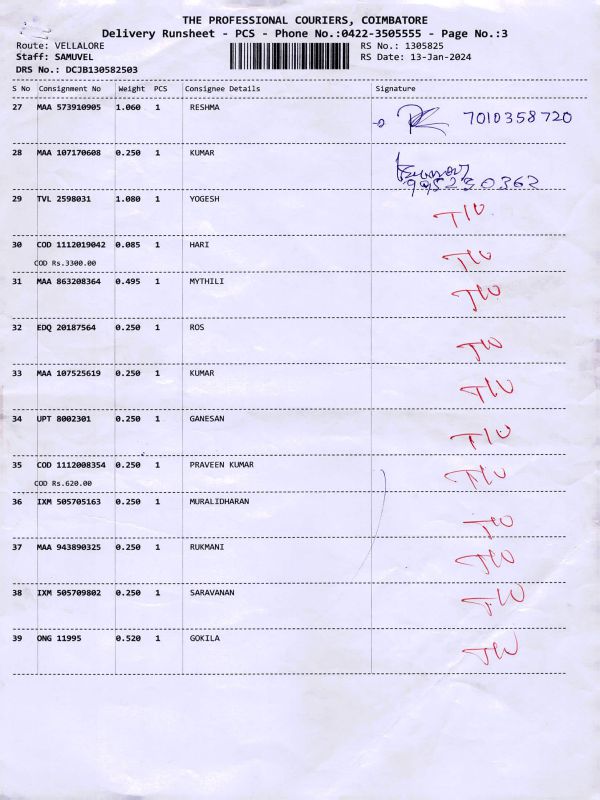 THE PROFESSIONAL COURIERS, COIMBATORE
Delivery Runsheet - PCS - Phone No.:0422-3505555 - Page No.:3
Route: VELLALORE RS No.: 1305825
Staff: SAMUVEL RS Date: 13-Jan-2024
DRS No.: DCJB130582503
S No Consignment No Weight PCS Consignee Details Signature
27 MAA 573910905 1.060 1 RESHMA 7010358720
28 MAA 107170608 0.250 1 KUMAR
995230362
29 TVL 2598031 1.080 1 YOGESH T/W
30 COD 1112019042 0.085 1 HARI T/W
COD Rs.3300.00
31 MAA 863208364 0.495 1 MYTHILI T/W
32 EDQ 20187564 0.250 1 ROS T/W
33 MAA 107525619 0.250 1 KUMAR T/W
34 UPT 8002301 0.250 1 GANESAN T/W
35 COD 1112008354 0.250 1 PRAVEEN KUMAR T/W
COD Rs.620.00
36 IXM 505705163 0.250 1 MURALIDHARAN T/W
37 MAA 943890325 0.250 1 RUKMANI T/W
38 IXM 505709802 0.250 1 SARAVANAN T/W
39 ONG 11995 0.520 1 GOKILA T/W